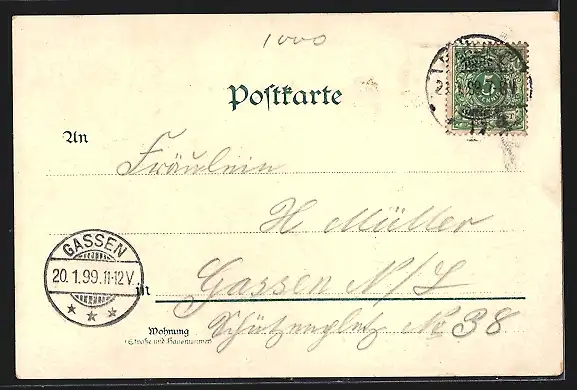 1000
Postkarte
5
An
Fräulein
H Müller
GASSEN
20.1.99.11-12V.
in Gassen N/L
Wohnung
(Straße und Hausnummer)
Schützenplatz No 38